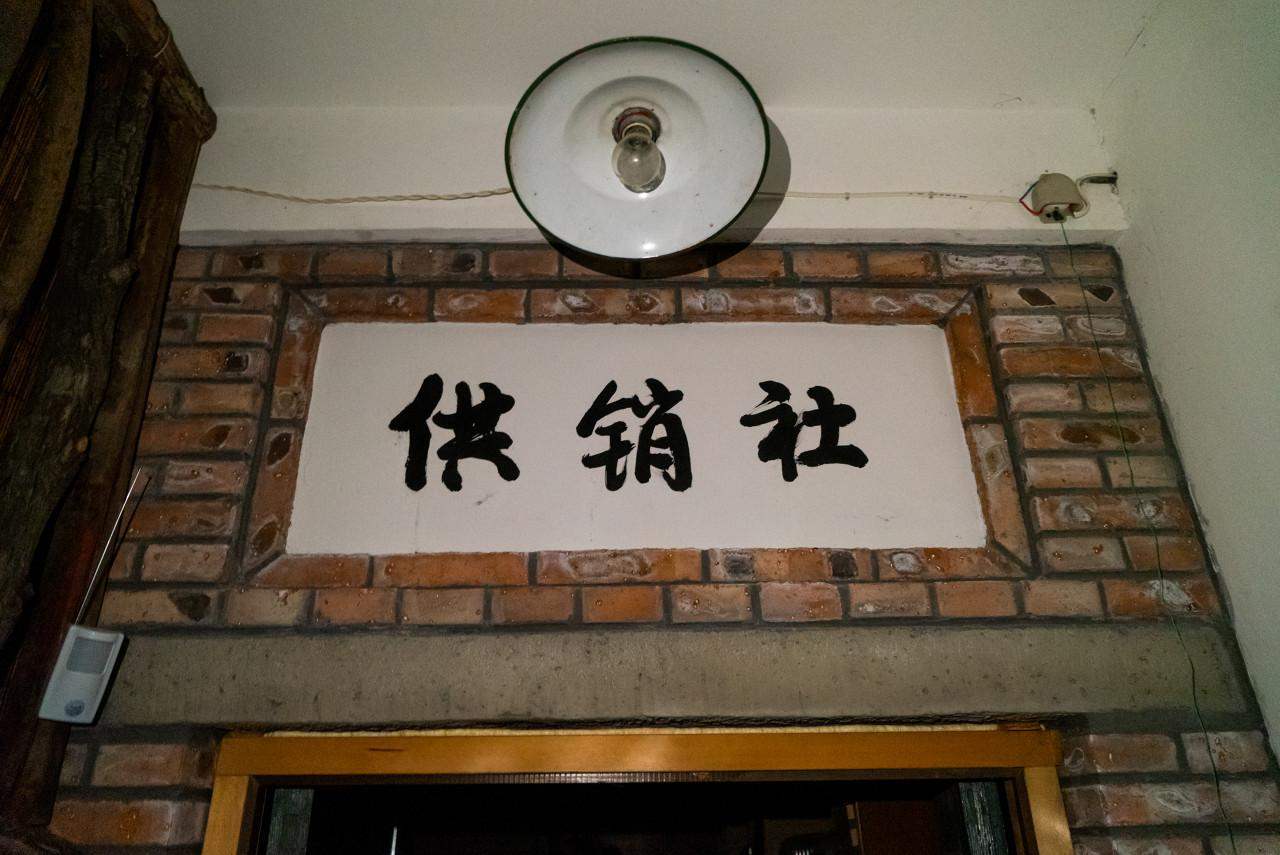 供销社